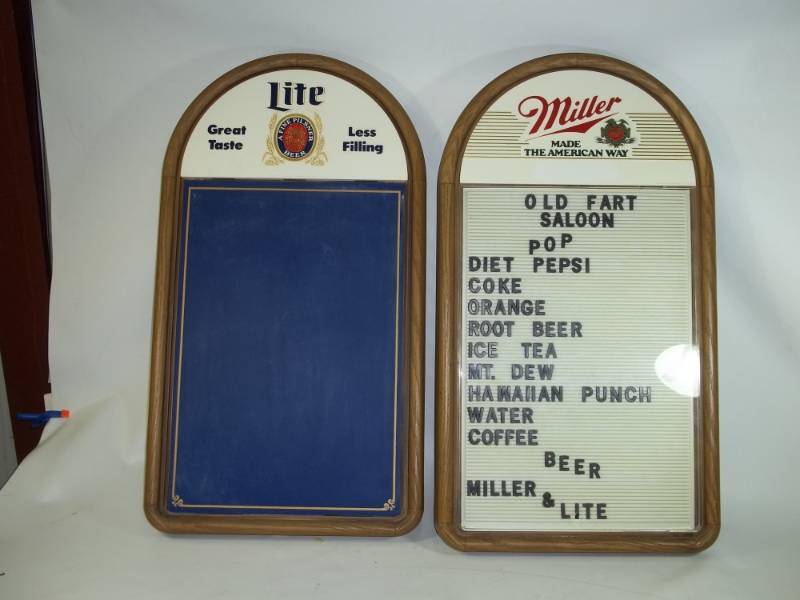 Lite
Great Taste
A FINE PILSNER BEER
Less Filling
Miller
MADE
THE AMERICAN WAY
OLD FART
SALOON
POP
DIET PEPSI
COKE
ORANGE
ROOT BEER
ICE TEA
MT. DEW
HAWAIIAN PUNCH
WATER
COFFEE
BEER
MILLER
&
LITE